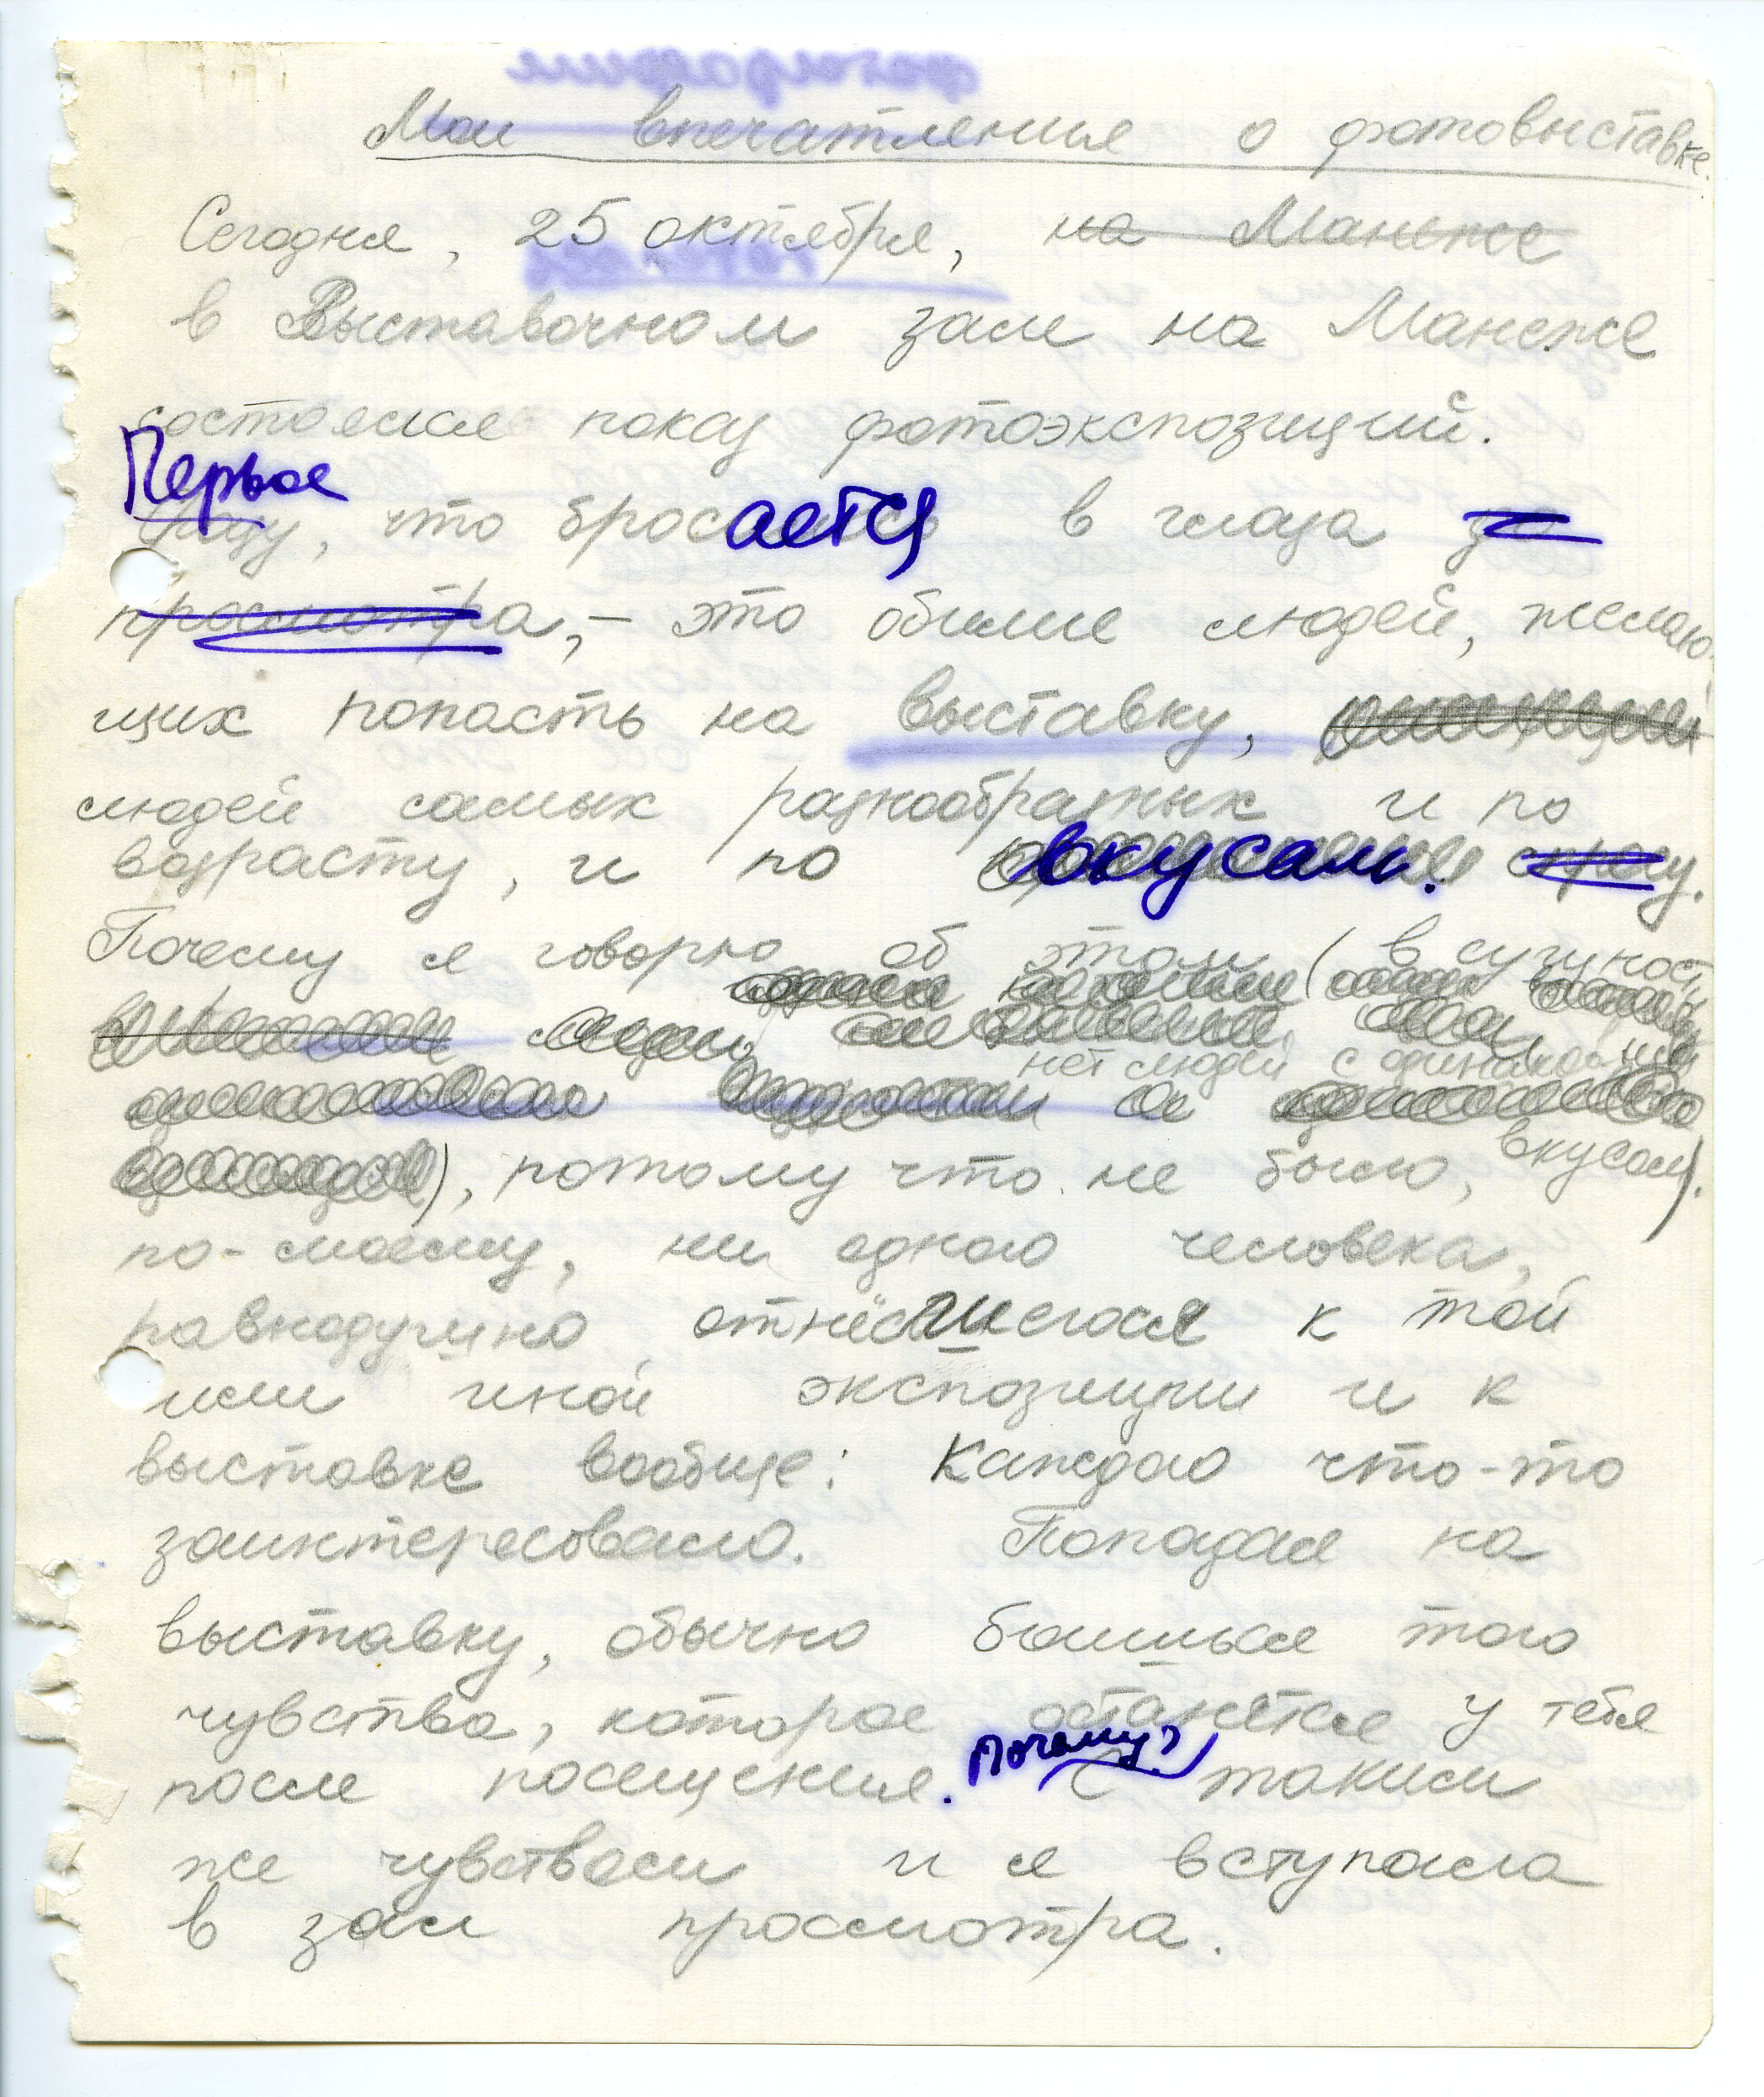 Мои впечатления о фотовыставке.
Сегодня, 25 октября, на Манеже
в Выставочном зале на Манеже
состоялся показ фотоэкспозиций.
Первое
, что бросается в глаза за
просмотра, – это обилие людей, желаю-
щих попасть на выставку,
людей самых разнообразных и по
возрасту, и по вкусам.
Почему я говорю об этом (в сущност
нет людей с одинаковыми
вкусами).
), потому что не было,
по-моему, ни одного человека,
равнодушно отнёсшегося к той
или иной экспозиции и к
выставке вообще: Каждого что-то
заинтересовало. Попадая на
выставку, обычно боишься того
чувства, которое останется у тебя
после посещения. Почему? С такими
же чувствами и я вступала
в зал просмотра.